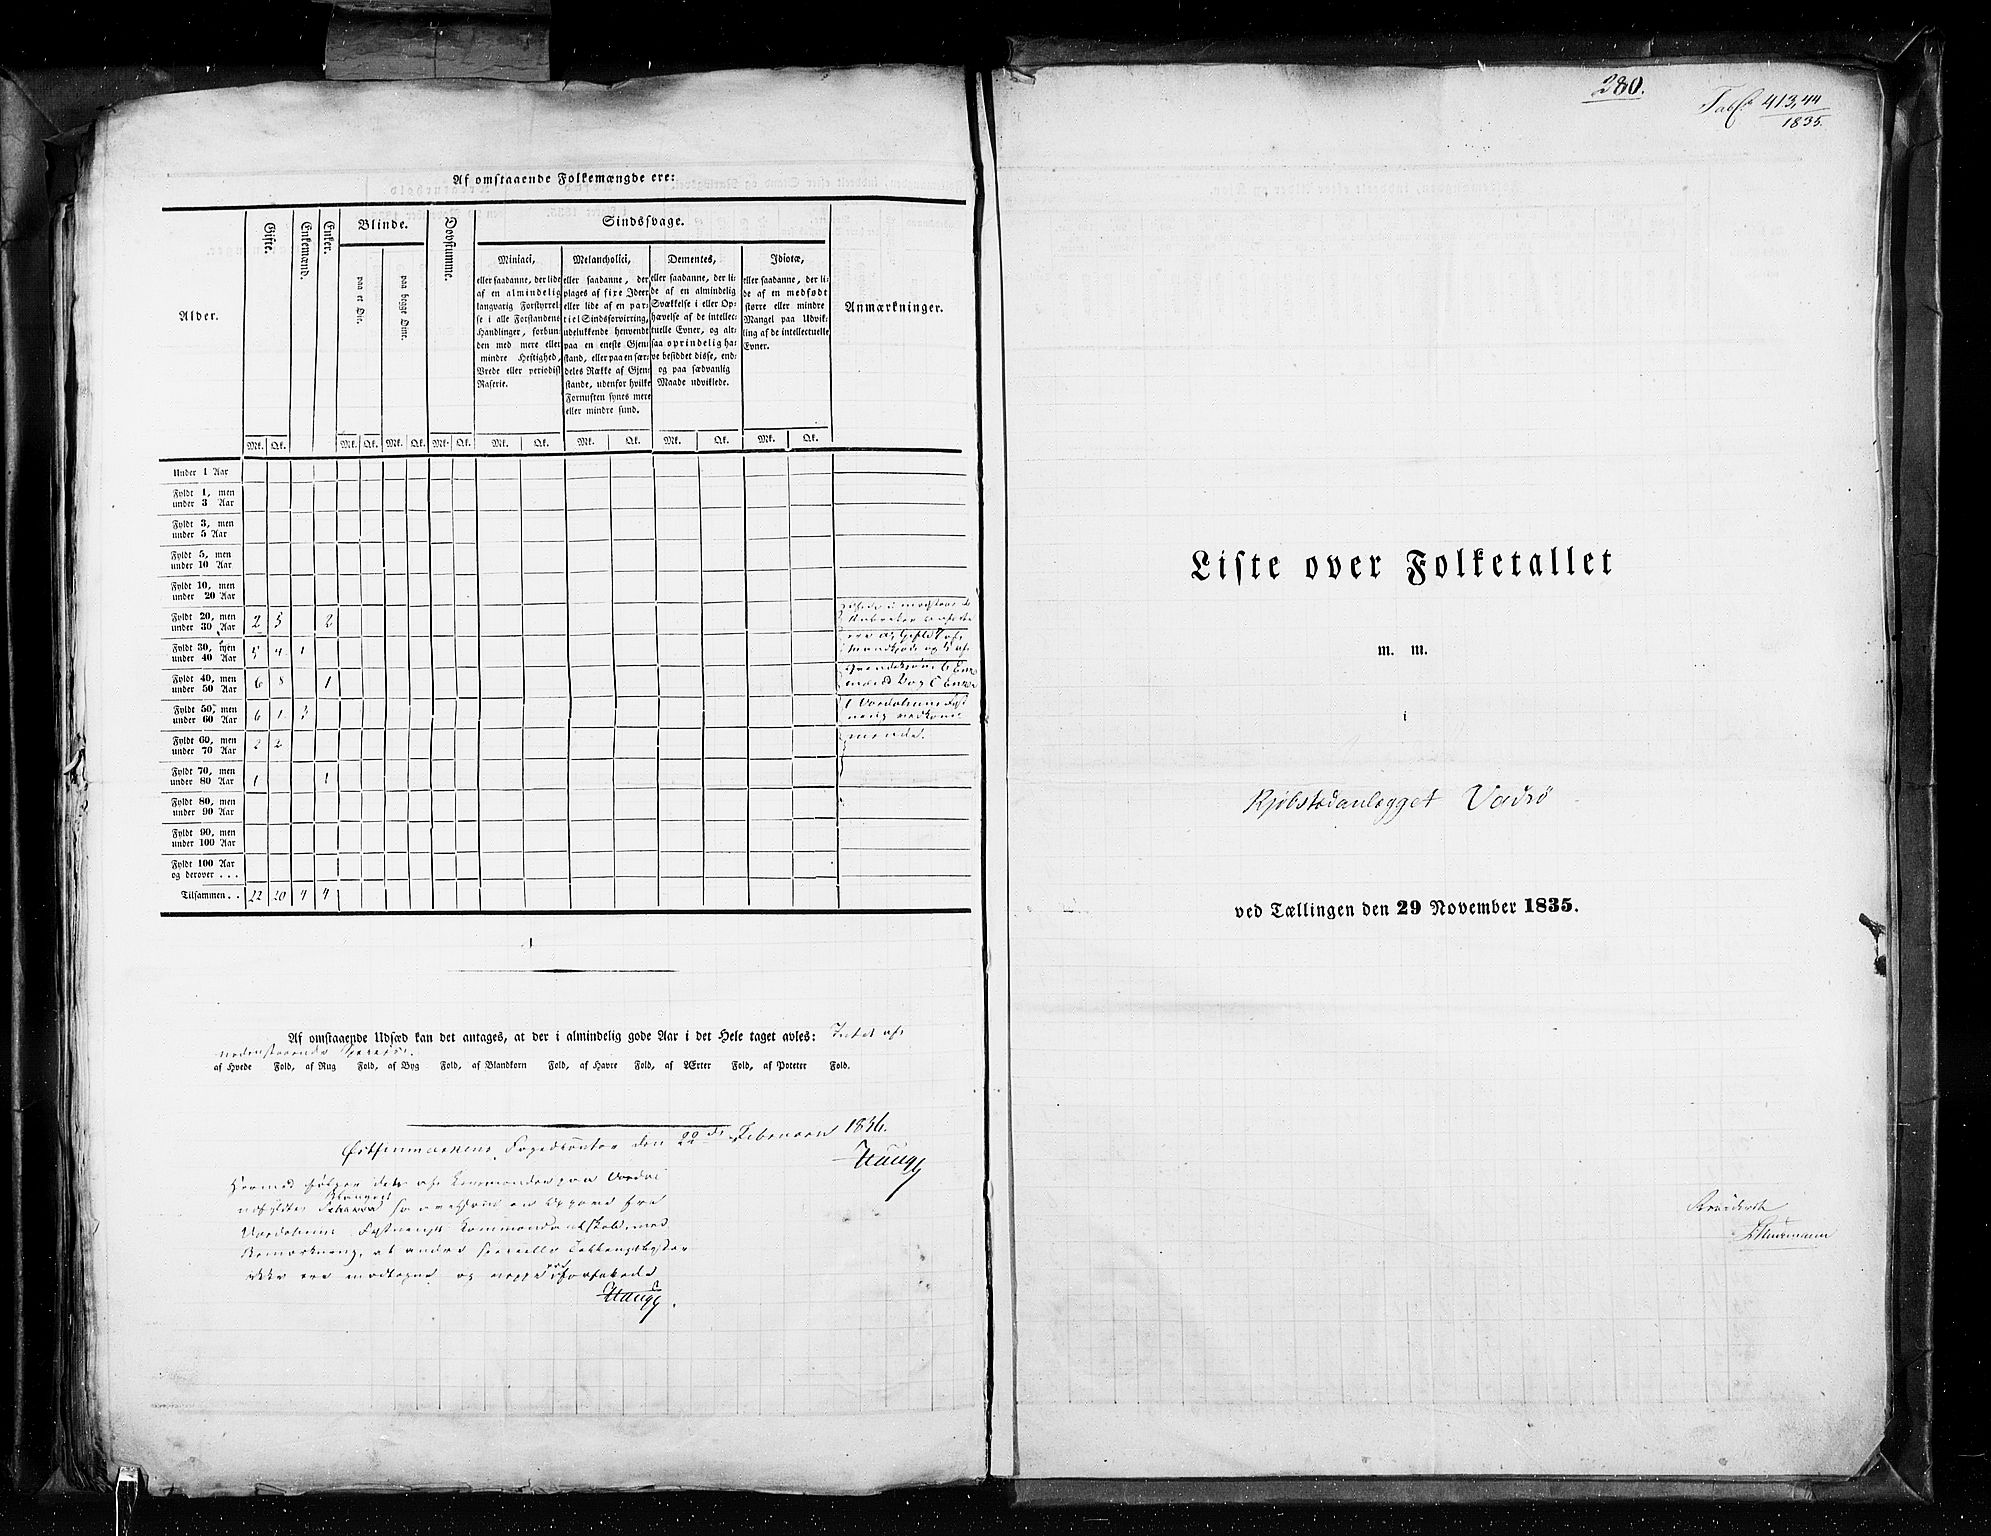 Af omstaaende Folkemængde ere:
Alder.
Gifte.
Enkemænd.
Enker.
Blinde.
paa et Øie.
paa begge Øine.
Døvstumme.
Sindssvage.
Miniaci,
eller saadanne, der lide
af en almindelig
langvarig Forstyrrel-
se i alle Forstandens
Handlinger, forbun-
den med mere eller
mindre Heftighed,
Vrede eller periodisk
Raserie.
Melancholici,
eller saadanne, der
plages af fixe Ideer
eller lide af en par-
tiel Sindsforvirring,
udelukkende henvendt
paa en eneste Gjen-
stand, eller paa en sær-
deles Række af Gjen-
stande, udenfor hvilke
Fornuften synes mere
eller mindre sund.
Dementes,
eller saadanne, der li-
de af en almindelig
Svækkelse i eller Op-
hævelse af de intellec-
tuelle Evner, og alt-
saa oprindelig ha-
ve besiddet disse, end-
og paa sædvanlig
Maade udviklede.
Idiotæ,
eller saadanne, der li-
de af en medfødt
større eller mindre
Mangel paa Udvik-
ling af de intellectuelle
Evner.
Anmærkninger.
Mk. Qk. Mk. Qk. Mk. Qk. Mk. Qk. Mk. Qk. Mk. Qk. Mk. Qk. Mk. Qk.
Under 1 Aar
Fyldt 1, men
under 3 Aar
Fyldt 3, men
under 5 Aar
Fyldt 5, men
under 10 Aar
Fyldt 10, men
under 20 Aar
Fyldt 20, men
under 30 Aar 2 5 2
Fyldt 30, men
under 40 Aar 5 4 1
Fyldt 40, men
under 50 Aar 6 8 1
Fyldt 50, men
under 60 Aar 6 1 3
Fyldt 60, men
under 70 Aar 2 2
Fyldt 70, men
under 80 Aar 1 1
Fyldt 80, men
under 90 Aar
Fyldt 90, men
under 100 Aar
Fyldt 100 Aar
og derover . . .
Tilsammen . . 22 20 4 4
Af omstaaende Udsæd kan det antages, at der i almindelig gode Aar i det Hele taget avles: Intet af
nedenstaaende
af Hvede Fold, af Rug Fold, af Byg Fold, af Blandkorn Fold, af Havre Fold, af Ærter Fold, af Poteter Fold.
Østfinmarkens Fogedkontor den 22de Februar 1836.
Haugg
Hermed følger det af Kommandanten paa
udfyldte
Fæstnings Kommandantskab, med
Bemærkning, at andre specielle
ikke ere modtagne og
Haugg.
280.
Tab. 413,44
1835.
Liste over Folketallet
m. m.
i
Kjøbstædanlægget Vadsø
ved Tællingen den 29 November 1835.